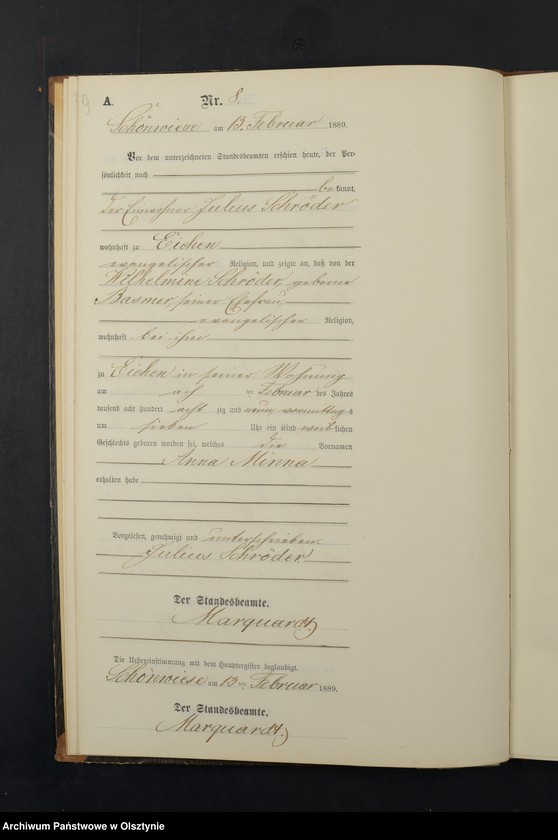 9
A.
Nr. 8.
Schönwiese am 13. Februar 1889.
Vor dem unterzeichneten Standesbeamten erschien heute, der Per-
sönlichkeit nach
bekannt,
der Einwohner Julius Schröder
wohnhaft zu Eichen
evangelischer Religion, und zeigte an, daß von der
Wilhelmine Schröder, geborne
Basmer, seiner Ehefrau,
evangelischer Religion,
wohnhaft bei ihm
zu Eichen in seiner Wohnung
am ten Februar des Jahres
tausend acht hundert acht zig und neun vormittags
um sieben Uhr ein Kind weiblichen
Geschlechts geboren worden sei, welches die Vornamen
Anna Minna
erhalten habe
Vorgelesen, genehmigt und unterschrieben.
Julius Schröder
Der Standesbeamte.
Marquardt
Die Uebereinstimmung mit dem Hauptregister beglaubigt.
Schönwiese am 13 ten Februar 1889.
Der Standesbeamte.
Marquardt.
Archiwum Państwowe w Olsztynie